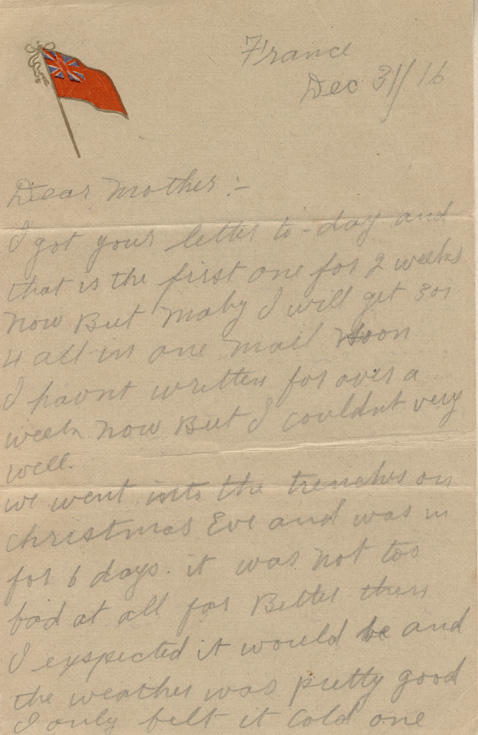 France
Dec 31/16
Dear Mother :-
I got your letter to-day and
that is the first one for 2 weeks
now But Maby I will get 3 or
4 all in one mail soon
I havnt written for over a
week now But I couldnt very
well.
we went into the trenches on
christmas Eve and was in
for 6 days. it was not too
bad at all far Better then
I expected it would be and
the weather was pretty good
I only felt it cold one